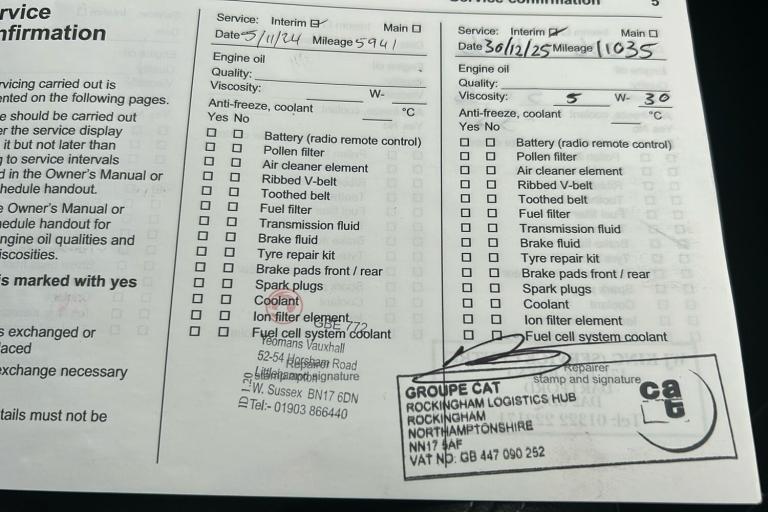 Service confirmation 5
rvice
nfirmation
rvicing carried out is
ented on the following pages.
e should be carried out
er the service display
it but not later than
g to service intervals
d in the Owner's Manual or
hedule handout.
e Owner's Manual or
hedule handout for
ngine oil qualities and
iscosities.
is marked with yes
s exchanged or
laced
exchange necessary
tails must not be
Service: Interim Main
Date 5/11/24 Mileage 5941
Engine oil
Quality:
Viscosity: W-
Anti-freeze, coolant °C
Yes No
Battery (radio remote control)
Pollen filter
Air cleaner element
Ribbed V-belt
Toothed belt
Fuel filter
Transmission fluid
Brake fluid
Tyre repair kit
Brake pads front / rear
Spark plugs
Coolant
Ion filter element
Fuel cell system coolant
GBE 772
Yeomans Vauxhall
52-54 Horsham Road
Repairer
Littlehampton
stamp and signature
W. Sussex BN17 6DN
Tel:- 01903 866440
Service: Interim Main
Date 30/12/25 Mileage 11035
Engine oil
Quality:
Viscosity: 5 W- 30
Anti-freeze, coolant °C
Yes No
Battery (radio remote control)
Pollen filter
Air cleaner element
Ribbed V-belt
Toothed belt
Fuel filter
Transmission fluid
Brake fluid
Tyre repair kit
Brake pads front / rear
Spark plugs
Coolant
Ion filter element
Fuel cell system coolant
Repairer
stamp and signature
GROUPE CAT
ROCKINGHAM LOGISTICS HUB
ROCKINGHAM
NORTHAMPTONSHIRE
NN17 5AF
VAT NO: GB 447 090 252
cat